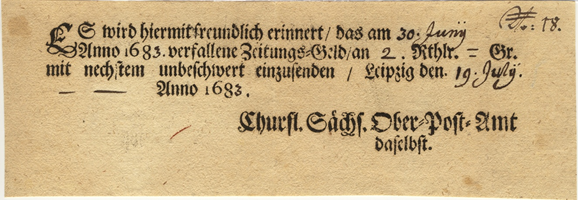 No: 18.
ES wird hiermit freundlich erinnert / das am 30. Junÿ
Anno 1683. verfallene Zeitungs-Geld / an 2. Rthlr. = Gr.
mit nechstem unbeschwert einzusenden / Leipzig den. 19. Julÿ.
— — Anno 1683.
Churfl. Sächs. Ober-Post-Amt
daselbst.